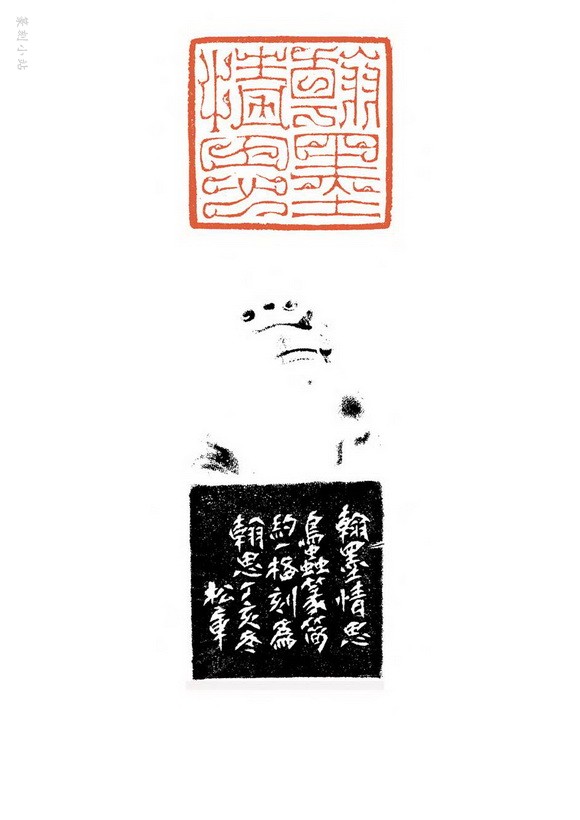 篆刻小站
翰墨情思
翰墨情思
鸟虫篆简
約一格刻爲
翰思丁亥冬
松庫